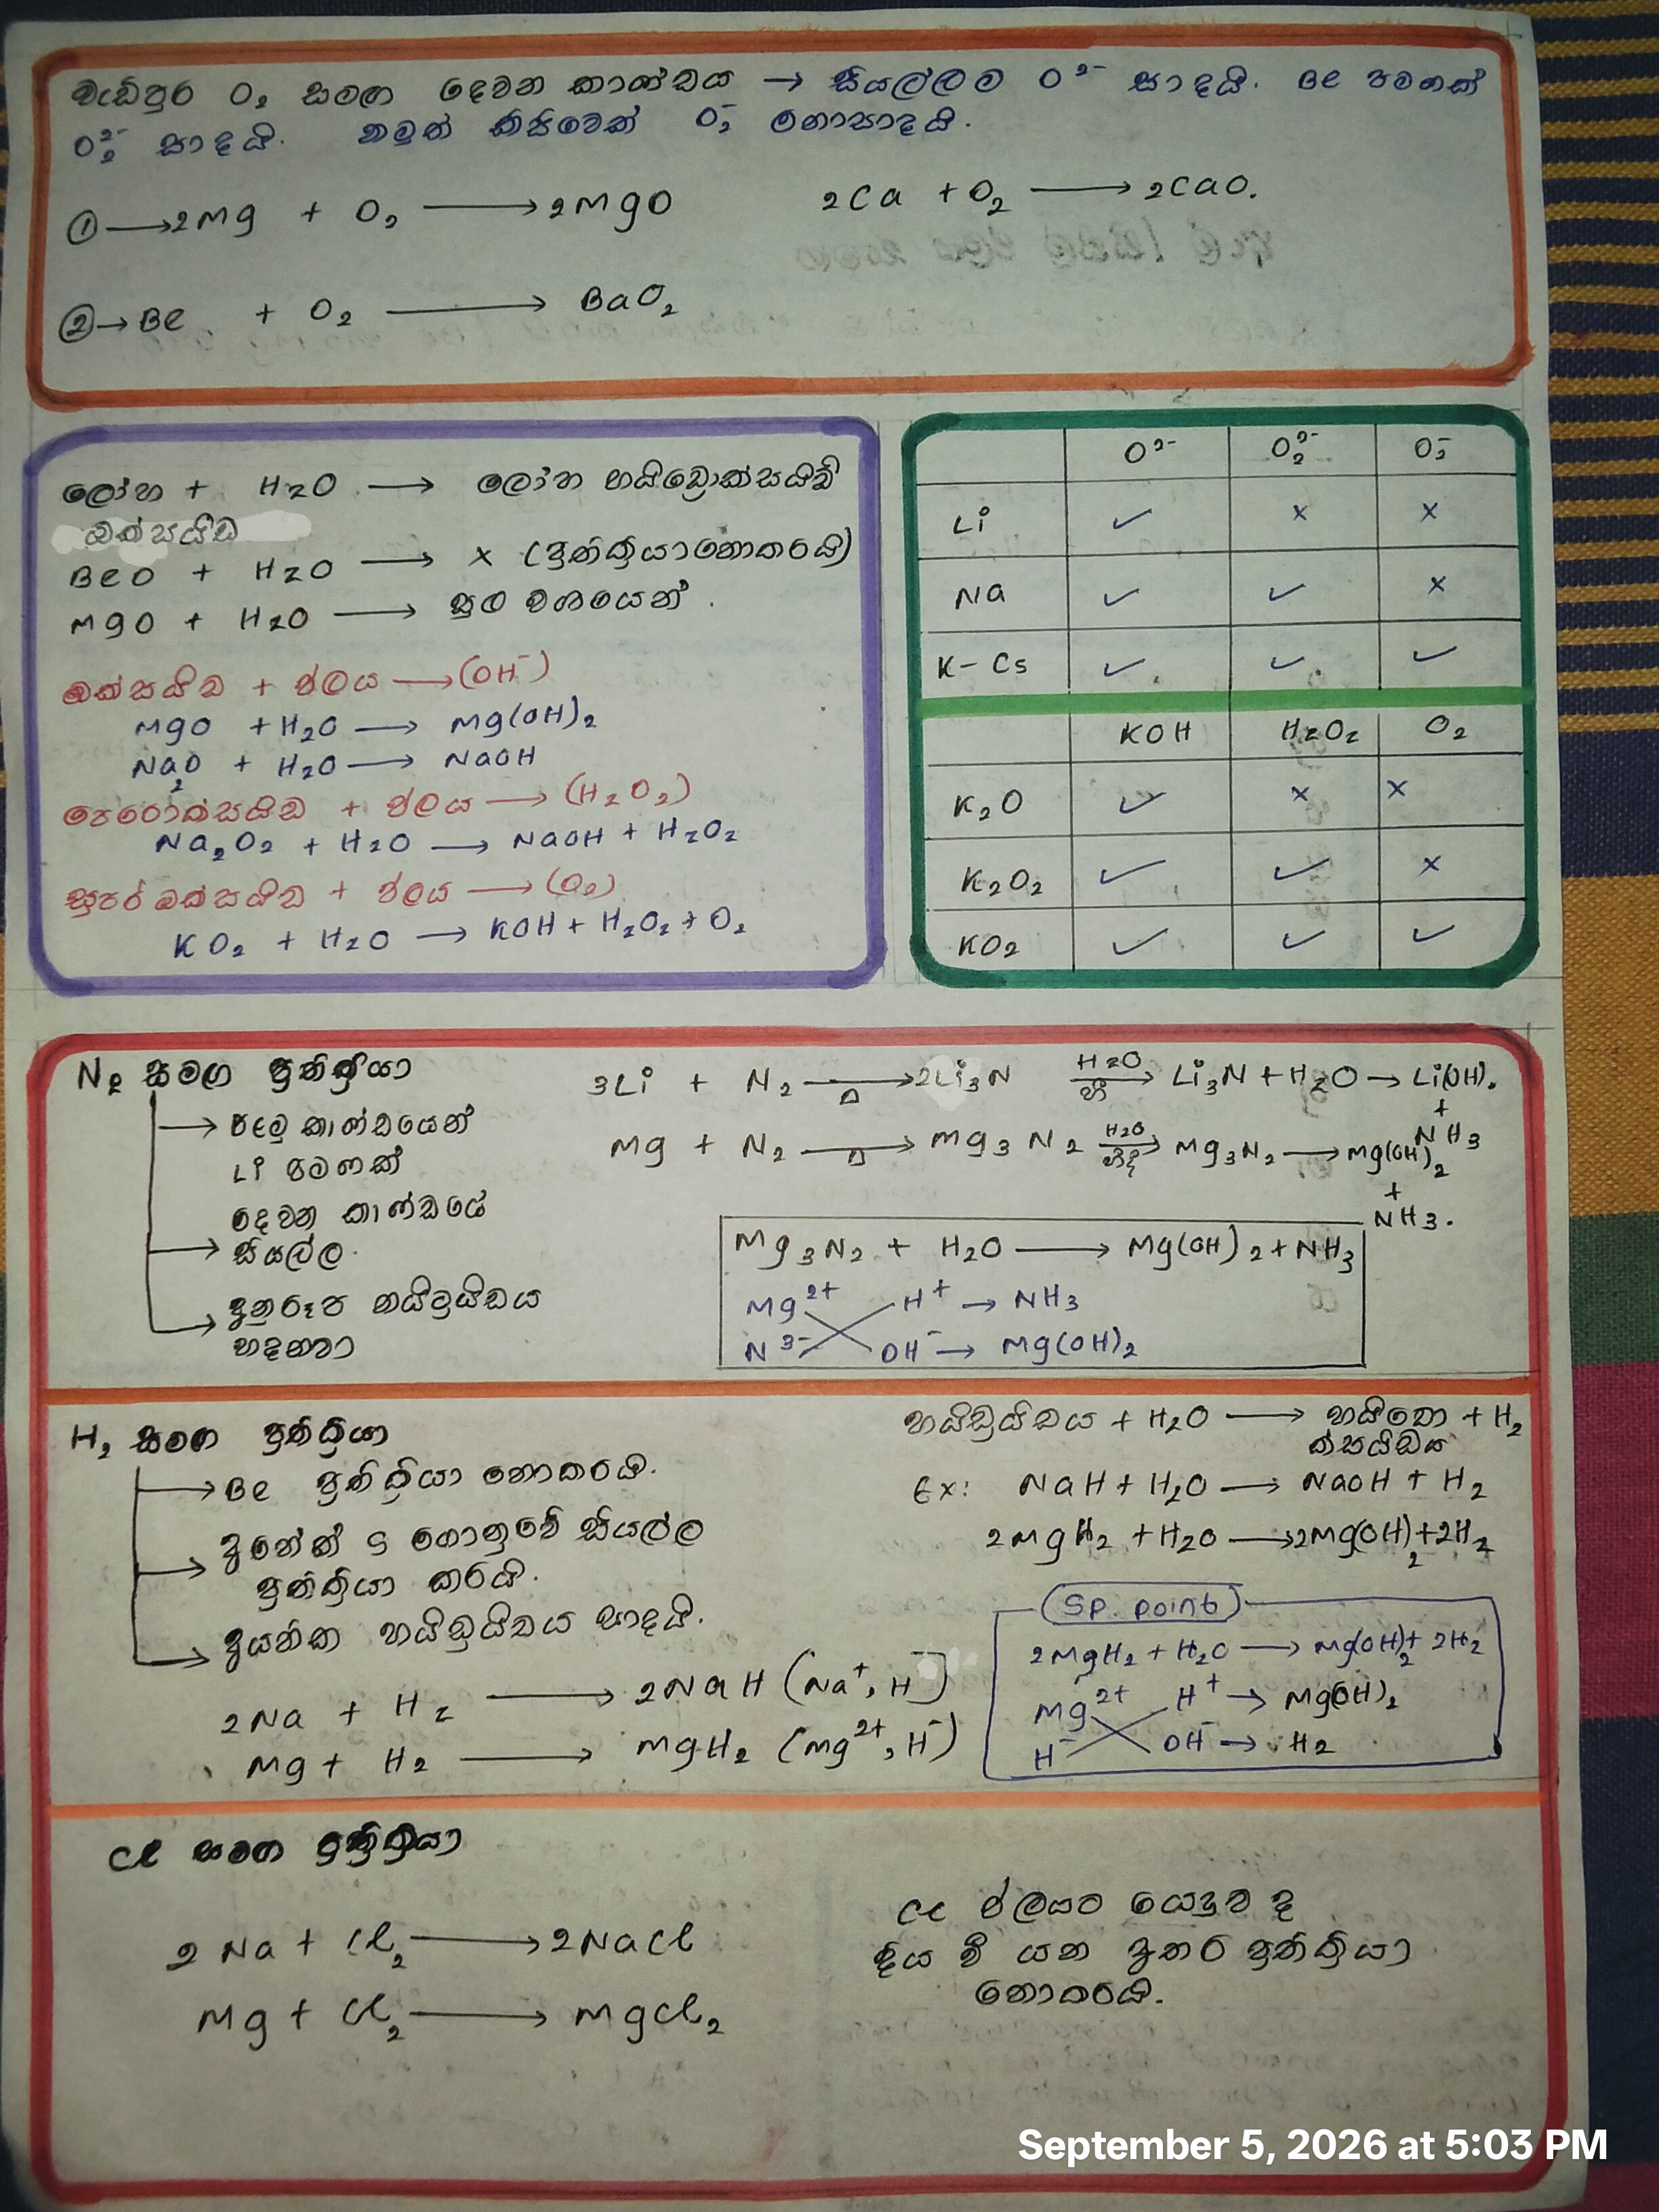 වැඩිපුර O₂ සමඟ දෙවන කාණ්ඩය → සියල්ලම O²⁻ සාදයි. Be පමණක්
O₂²⁻ සාදයි. නමුත් කිසිවෙක් O₂⁻ නොසාදයි.
① → 2Mg + O₂ ⟶ 2MgO 2Ca + O₂ ⟶ 2CaO.
② → Be + O₂ ⟶ BaO₂
ලෝහ + H₂O ⟶ ලෝහ හයිඩ්‍රොක්සයිඩ්
ඔක්සයිඩ
BeO + H₂O ⟶ x (ප්‍රතික්‍රියා නොකරයි)
MgO + H₂O ⟶ සුළු වශයෙන්.
ඔක්සයිඩ + ජලය ⟶ (OH⁻)
MgO + H₂O ⟶ Mg(OH)₂
Na₂O + H₂O ⟶ NaOH
පෙරොක්සයිඩ + ජලය ⟶ (H₂O₂)
Na₂O₂ + H₂O ⟶ NaOH + H₂O₂
සුපර් ඔක්සයිඩ + ජලය ⟶ (O₂)
KO₂ + H₂O ⟶ KOH + H₂O₂ + O₂
O²⁻ O₂²⁻ O₂⁻
Li ✓ × ×
Na ✓ ✓ ×
K - Cs ✓ ✓ ✓
KOH H₂O₂ O₂
K₂O ✓ × ×
K₂O₂ ✓ ✓ ×
KO₂ ✓ ✓ ✓
N₂ සමග ප්‍රතික්‍රියා
→ පළමු කාණ්ඩයෙන්
Li පමණක්
දෙවන කාණ්ඩයේ
→ සියල්ල.
→ අනුරූප නයිට්‍රයිඩය
හදනවා
3Li + N₂ ⟶ 2Li₃N H₂O ⟶ Li₃N + H₂O → Li(OH).
△ + NH₃
Mg + N₂ ⟶ Mg₃N₂ H₂O ⟶ Mg₃N₂ ⟶ Mg(OH)₂
△ + NH₃.
Mg₃N₂ + H₂O ⟶ Mg(OH)₂ + NH₃
Mg²⁺ H⁺ → NH₃
N³⁻ OH⁻ → Mg(OH)₂
H₂ සමග ප්‍රතික්‍රියා
→ Be ප්‍රතික්‍රියා නොකරයි.
→ අනෙක් S ගොනුවේ සියල්ල
ප්‍රතික්‍රියා කරයි.
→ අයනික හයිඩ්‍රයිඩය සාදයි.
2Na + H₂ ⟶ 2NaH (Na⁺, H⁻)
Mg + H₂ ⟶ MgH₂ (Mg²⁺, H⁻)
හයිඩ්‍රයිඩය + H₂O ⟶ හයිඩො + H₂
ක්සයිඩය
Ex: NaH + H₂O ⟶ NaOH + H₂
2MgH₂ + H₂O ⟶ 2Mg(OH)₂ + 2H₂
Sp. point
2MgH₂ + H₂O ⟶ Mg(OH)₂ + 2H₂
Mg²⁺ H⁺ → Mg(OH)₂
H⁻ OH⁻ → H₂
Cl සමග ප්‍රතික්‍රියා
2Na + Cl₂ ⟶ 2NaCl
Mg + Cl₂ ⟶ MgCl₂
Cl ජලයට යෙදුව ද
දිය වී යන අතර ප්‍රතික්‍රියා
නොකරයි.
September 5, 2026 at 5:03 PM